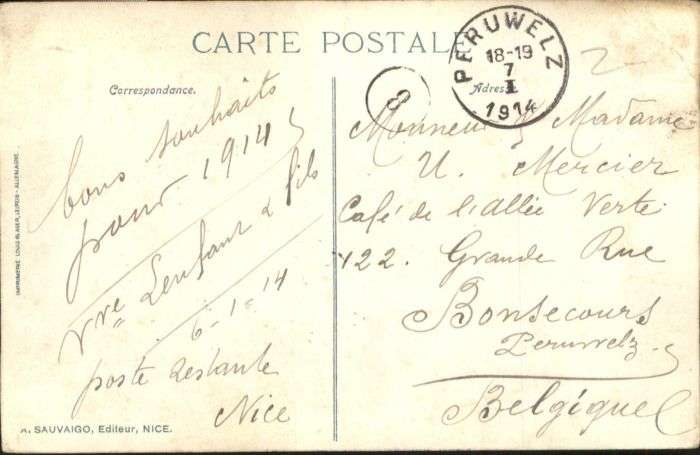 CARTE POSTALE
Correspondance.
Adresse
PERUWELZ
18-19
7
I
1914
8
2
bons souhaits
pour 1914
Vve Lenfant & fils
6-1-14
poste restante
Nice
Monsieur & Madame
U. Mercier
Café de l'allée Verte
122. Grande Rue
Bonsecours
Peruwelz
Belgique
A. SAUVAIGO, Editeur, NICE.
IMPRIMERIE LOUIS GLASER, LEIPZIG - ALLEMAGNE.